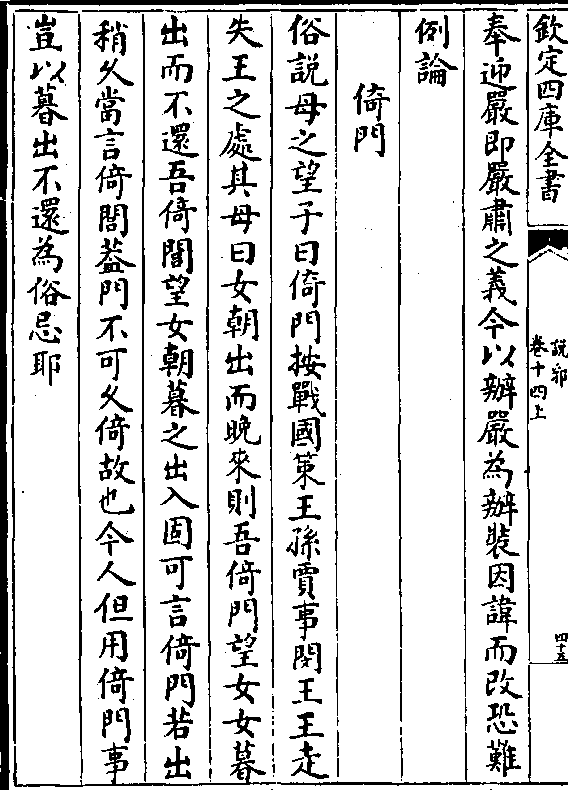 欽定四庫全書
說郛
卷十四上
四十五
奉迎嚴即嚴肅之義今以辦嚴為辦裝因諱而改恐難
例論
倚門
俗說母之望子曰倚門按戰國策王孫賈事閔王王走
失王之處其母曰女朝出而晚來則吾倚門望女女暮
出而不還吾倚閭望女朝暮之出入固可言倚門若出
稍久當言倚閭葢門不可久倚故也今人但用倚門事
豈以暮出不還為俗忌耶